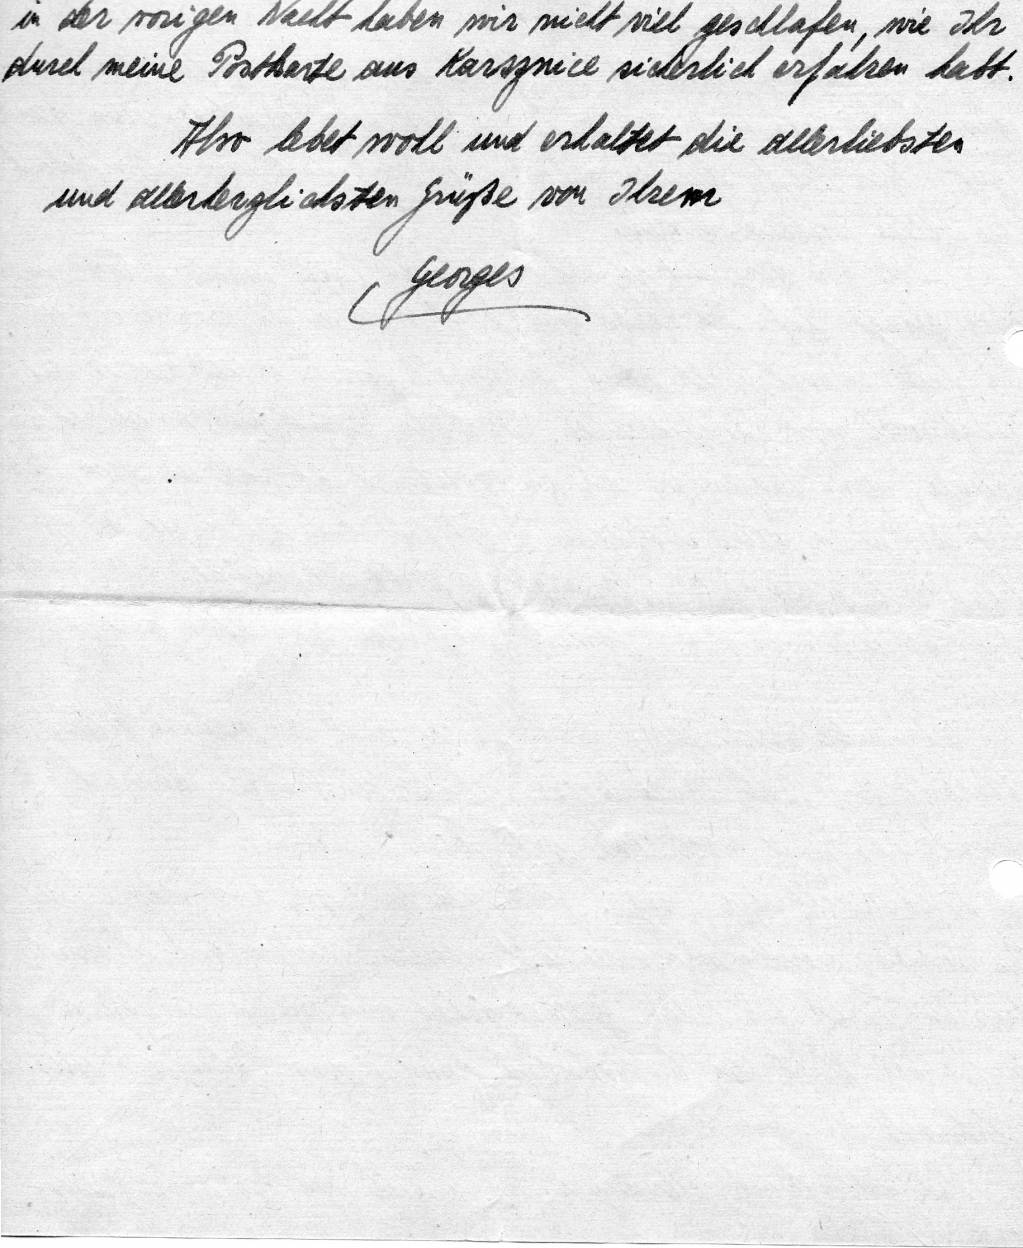 in der vorigen Nacht haben wir nicht viel geschlafen, wie Ihr
durch meine Postkarte aus Karsznice sicherlich erfahren habt.
Also lebet wohl und erhaltet die allerliebsten
und allerherzlichsten Grüße von Ihrem
Georges